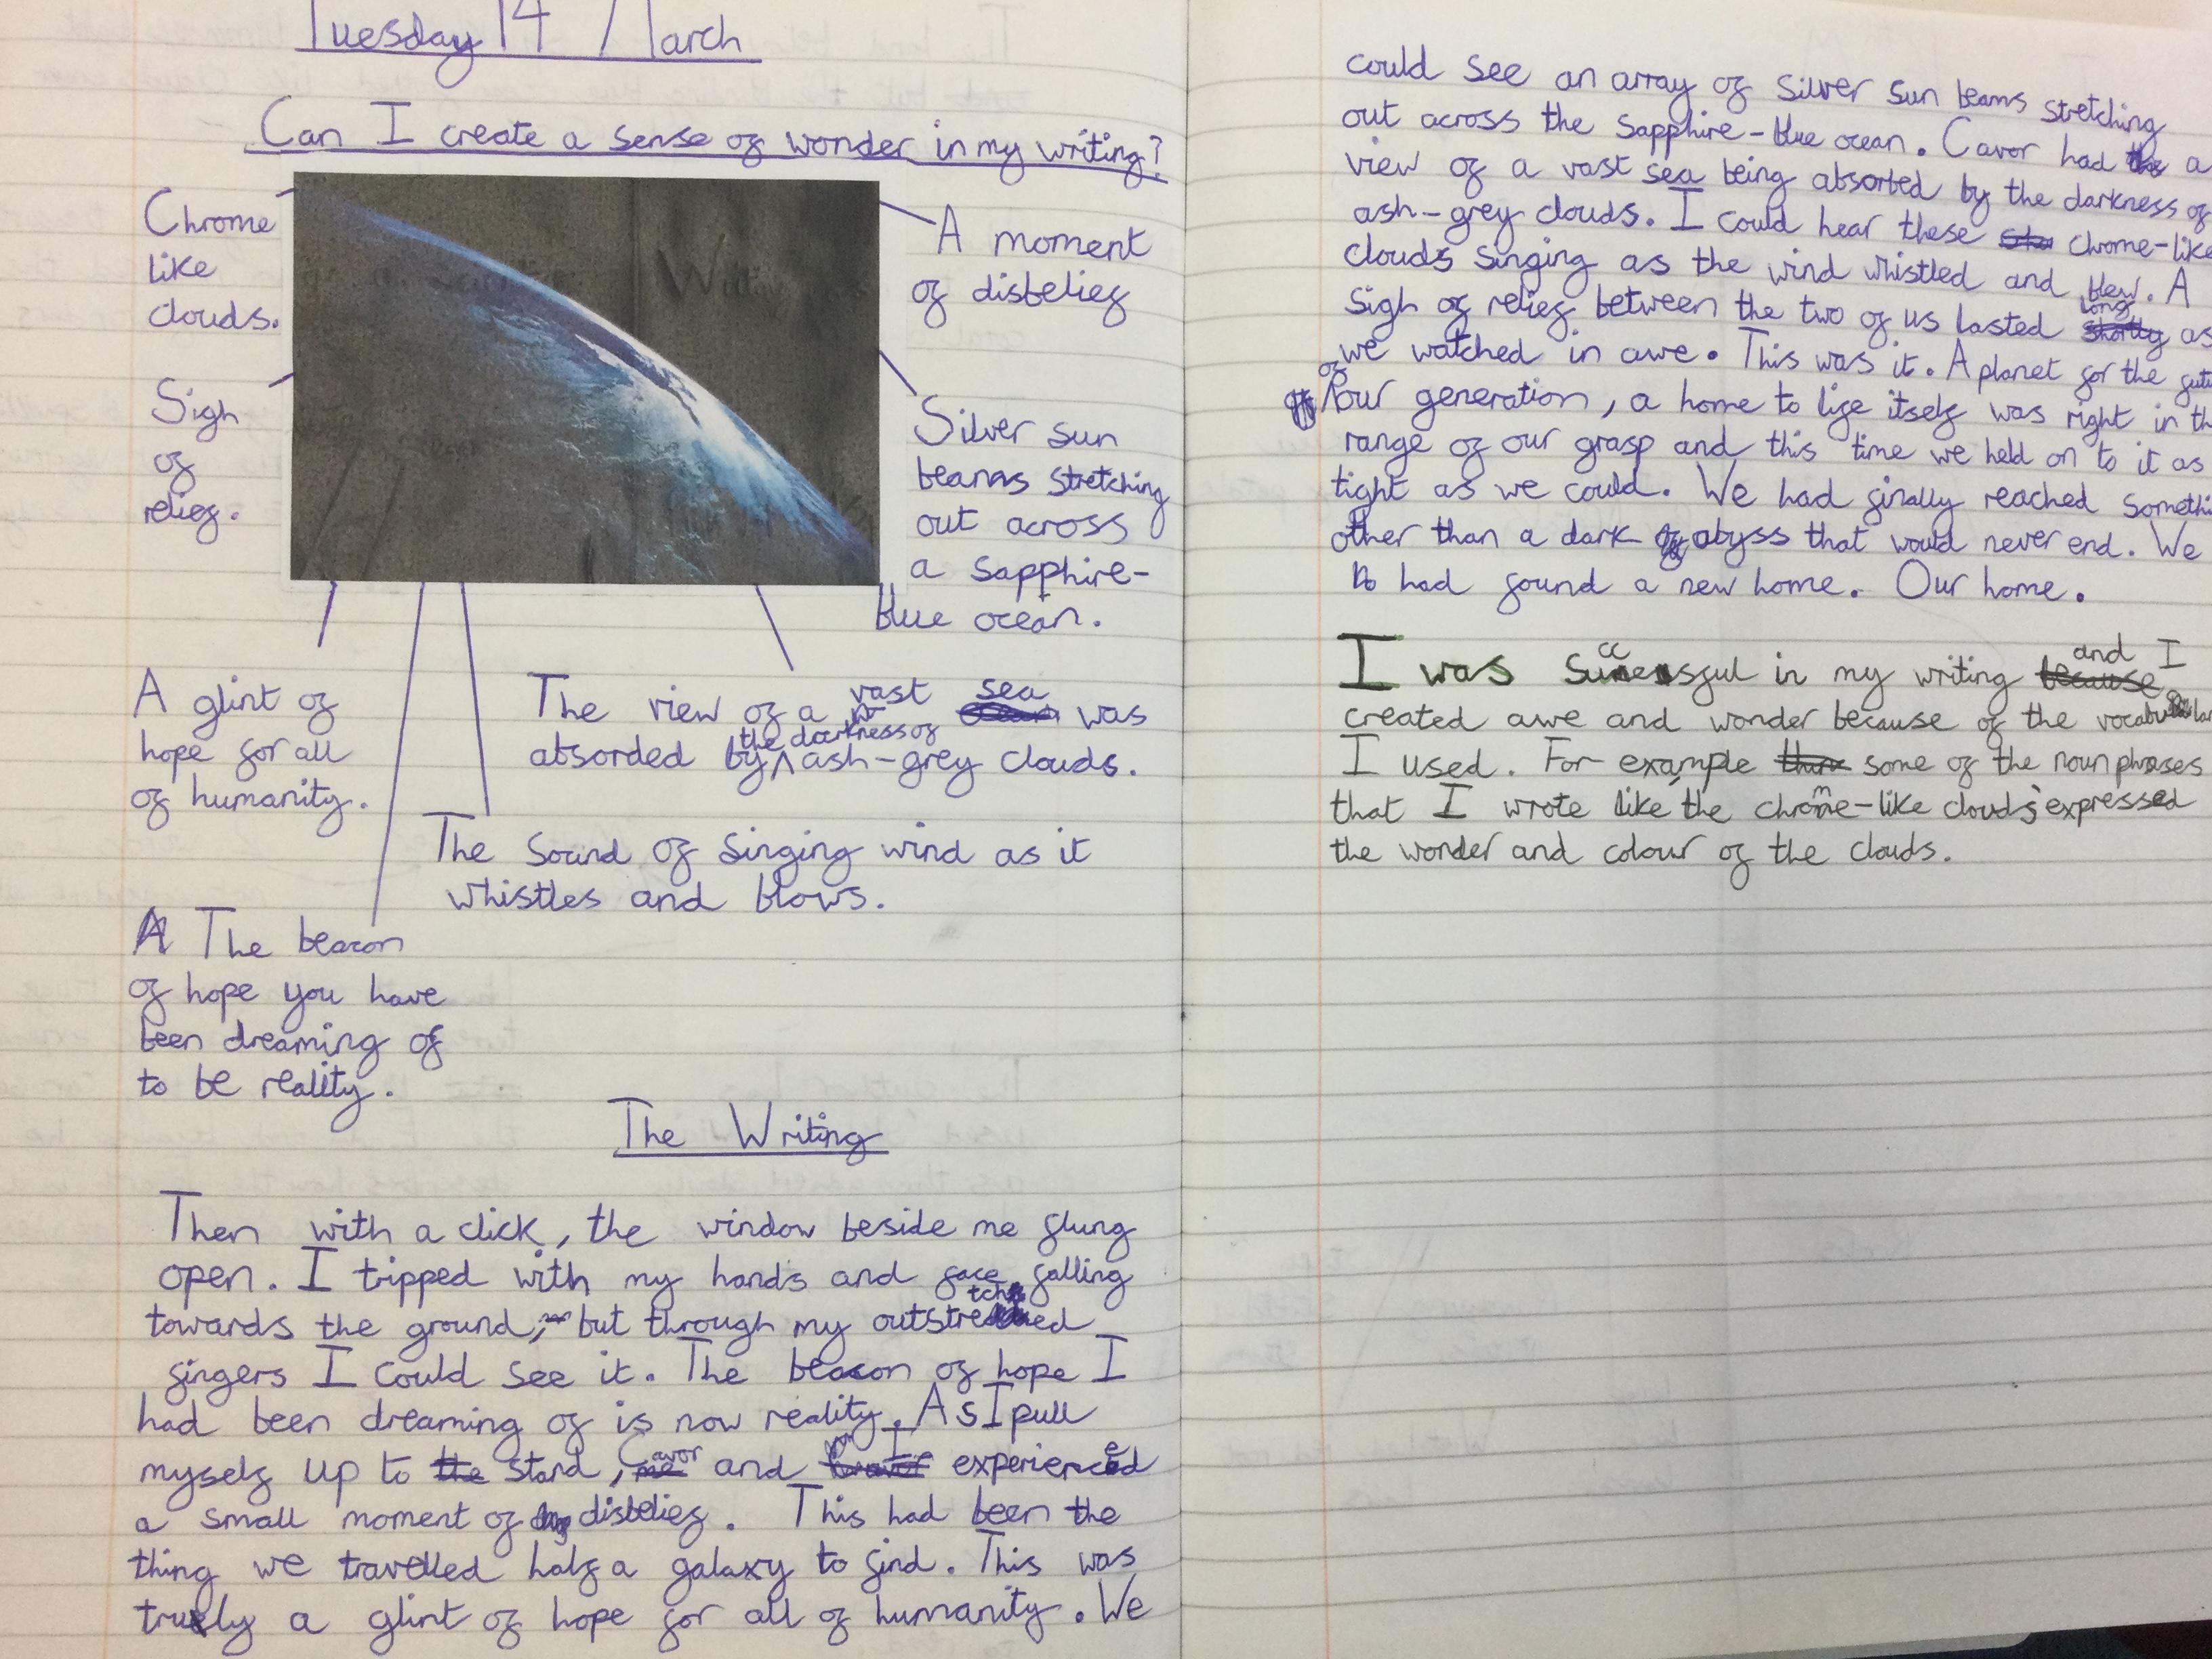 Tuesday 14 March
Can I create a sense of wonder in my writing?
Chrome
like
clouds.
Sigh
of
relief.
A moment
of disbelief
Silver sun
beams stretching
out across
a sapphire-
blue ocean.
A glint of
hope for all
of humanity.
The view of a vast sea was
absorded by the darkness of ash-grey clouds.
The sound of singing wind as it
whistles and blows.
The beacon
of hope you have
been dreaming of
to be reality.
The Writing
Then with a click, the window beside me flung
open. I tripped with my hands and face falling
towards the ground, but through my outstretched
fingers I could see it. The beacon of hope I
had been dreaming of is now reality. As I pull
myself up to stand, Cavor and I experienced
a small moment of disbelief. This had been the
thing we travelled half a galaxy to find. This was
truly a glint of hope for all of humanity. We
could see an array of silver sun beams stretching
out across the sapphire-blue ocean. Cavor had a
view of a vast sea being absorted by the darkness of
ash-grey clouds. I could hear these chrome-like
clouds singing as the wind whistled and blew. A
sigh of relief between the two of us lasted long as
we watched in awe. This was it. A planet for the
of our generation, a home to life itself was right in
range of our grasp and this time we held on to it as
tight as we could. We had finally reached
other than a dark abyss that would never end. We
had found a new home. Our home.
I was successful in my writing and I
created awe and wonder because of the
I used. For example some of the noun phrases
that I wrote like 'the chrome-like clouds' expressed
the wonder and colour of the clouds.